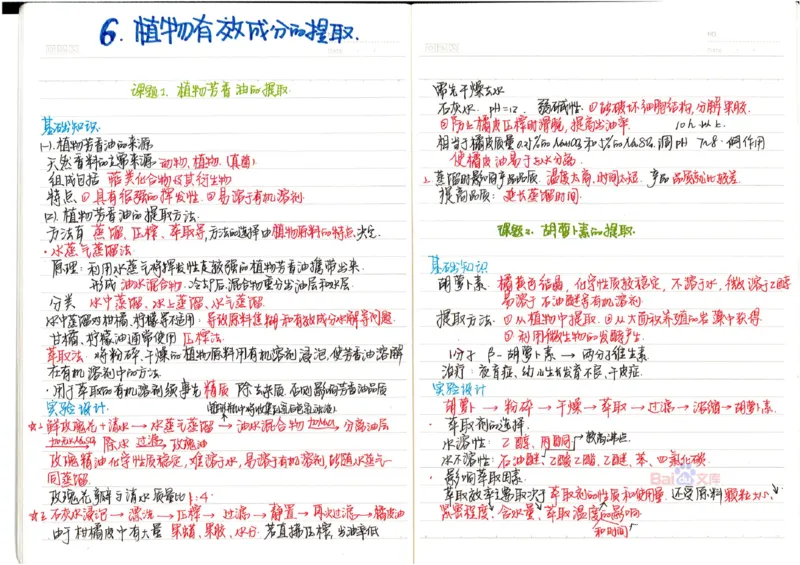 6. 植物有效成分的提取.
课题1. 植物芳香油的提取.
基础知识.
(一). 植物芳香油的来源
天然香料的主要来源 动物, 植物. (真菌)
组成包括 萜类化合物及其衍生物
特点 ①具有很强的挥发性 ②易溶于有机溶剂.
(二). 植物芳香油的提取方法.
方法有 蒸馏, 压榨, 萃取等, 方法的选择由植物原料的特点决定.
·水蒸气蒸馏法
原理: 利用水蒸气将挥发性较强的植物芳香油携带出来.
形成油水混合物. 冷却后, 混合物重分出油层和水层.
分类 水中蒸馏. 水上蒸馏. 水气蒸馏.
水中蒸馏对柑橘, 柠檬等不适用: 导致原料焦糊和有效成分水解等问题.
甘橘, 柠檬油通常使用 压榨法.
萃取法: 将粉碎、干燥的植物原料用有机溶剂浸泡, 使芳香油溶解
在有机溶剂中的方法.
·用于萃取的有机溶剂须事先精质 除去杂质. 否则影响芳香油品质
实验设计.
☆1. 鲜玫瑰花+清水→水蒸气蒸馏→油水混合物 加NaCl 分离油层
加无水Na₂SO₄ 除水 过滤 玫瑰油
玫瑰精油化学性质稳定, 难溶于水, 易溶于有机溶剂, 能随水蒸气一
同蒸馏.
玫瑰花瓣与清水质量比 1:4.
☆2. 石灰水浸泡→漂洗→压榨→过滤→静置→再次过滤→橘皮油
由于柑橘皮中有大量 果蜡、果胶、水分. 若直接压榨, 出油率低
需先干燥去水
石灰水. pH=12. 弱碱性. ①破坏细胞结构, 分解果胶.
②防止橘皮压榨时滑脱, 提高出油率. 10h以上.
相当于橘皮质量0.25%的NaHCO₃和5%的Na₂SO₄ 调pH 7~8. 何作用
使橘皮油易于与水分离.
2. 蒸馏时影响产品品质. 温度太高, 时间太短. 产品品质就比较差
提高品质: 延长蒸馏时间.
课题2. 胡萝卜素的提取.
基础知识
胡萝卜素. 橘黄色结晶, 化学性质较稳定, 不溶于水, 微溶于乙醇
易溶于石油醚等有机溶剂
提取方法: ①从植物中提取. ②从大面积养殖的岩藻中获得
③利用微生物的发酵产生.
1分子 β-胡萝卜素 → 两分子维生素.
治疗: 夜盲症, 幼儿生长发育不良、干皮症.
实验设计
胡萝卜 → 粉碎 → 干燥 → 萃取 → 过滤 → 浓缩 → 胡萝卜素.
·萃取剂的选择.
水溶性: 乙醇、丙酮 较高沸点.
水不溶性: 石油醚、乙酸乙酯、乙醚、苯、四氯化碳.
·影响萃取因素.
萃取效率主要取决于萃取剂的性质和使用量. 还受原料颗粒大小、
紧密程度、含水量、萃取温度的影响.
和时间
Bai文库